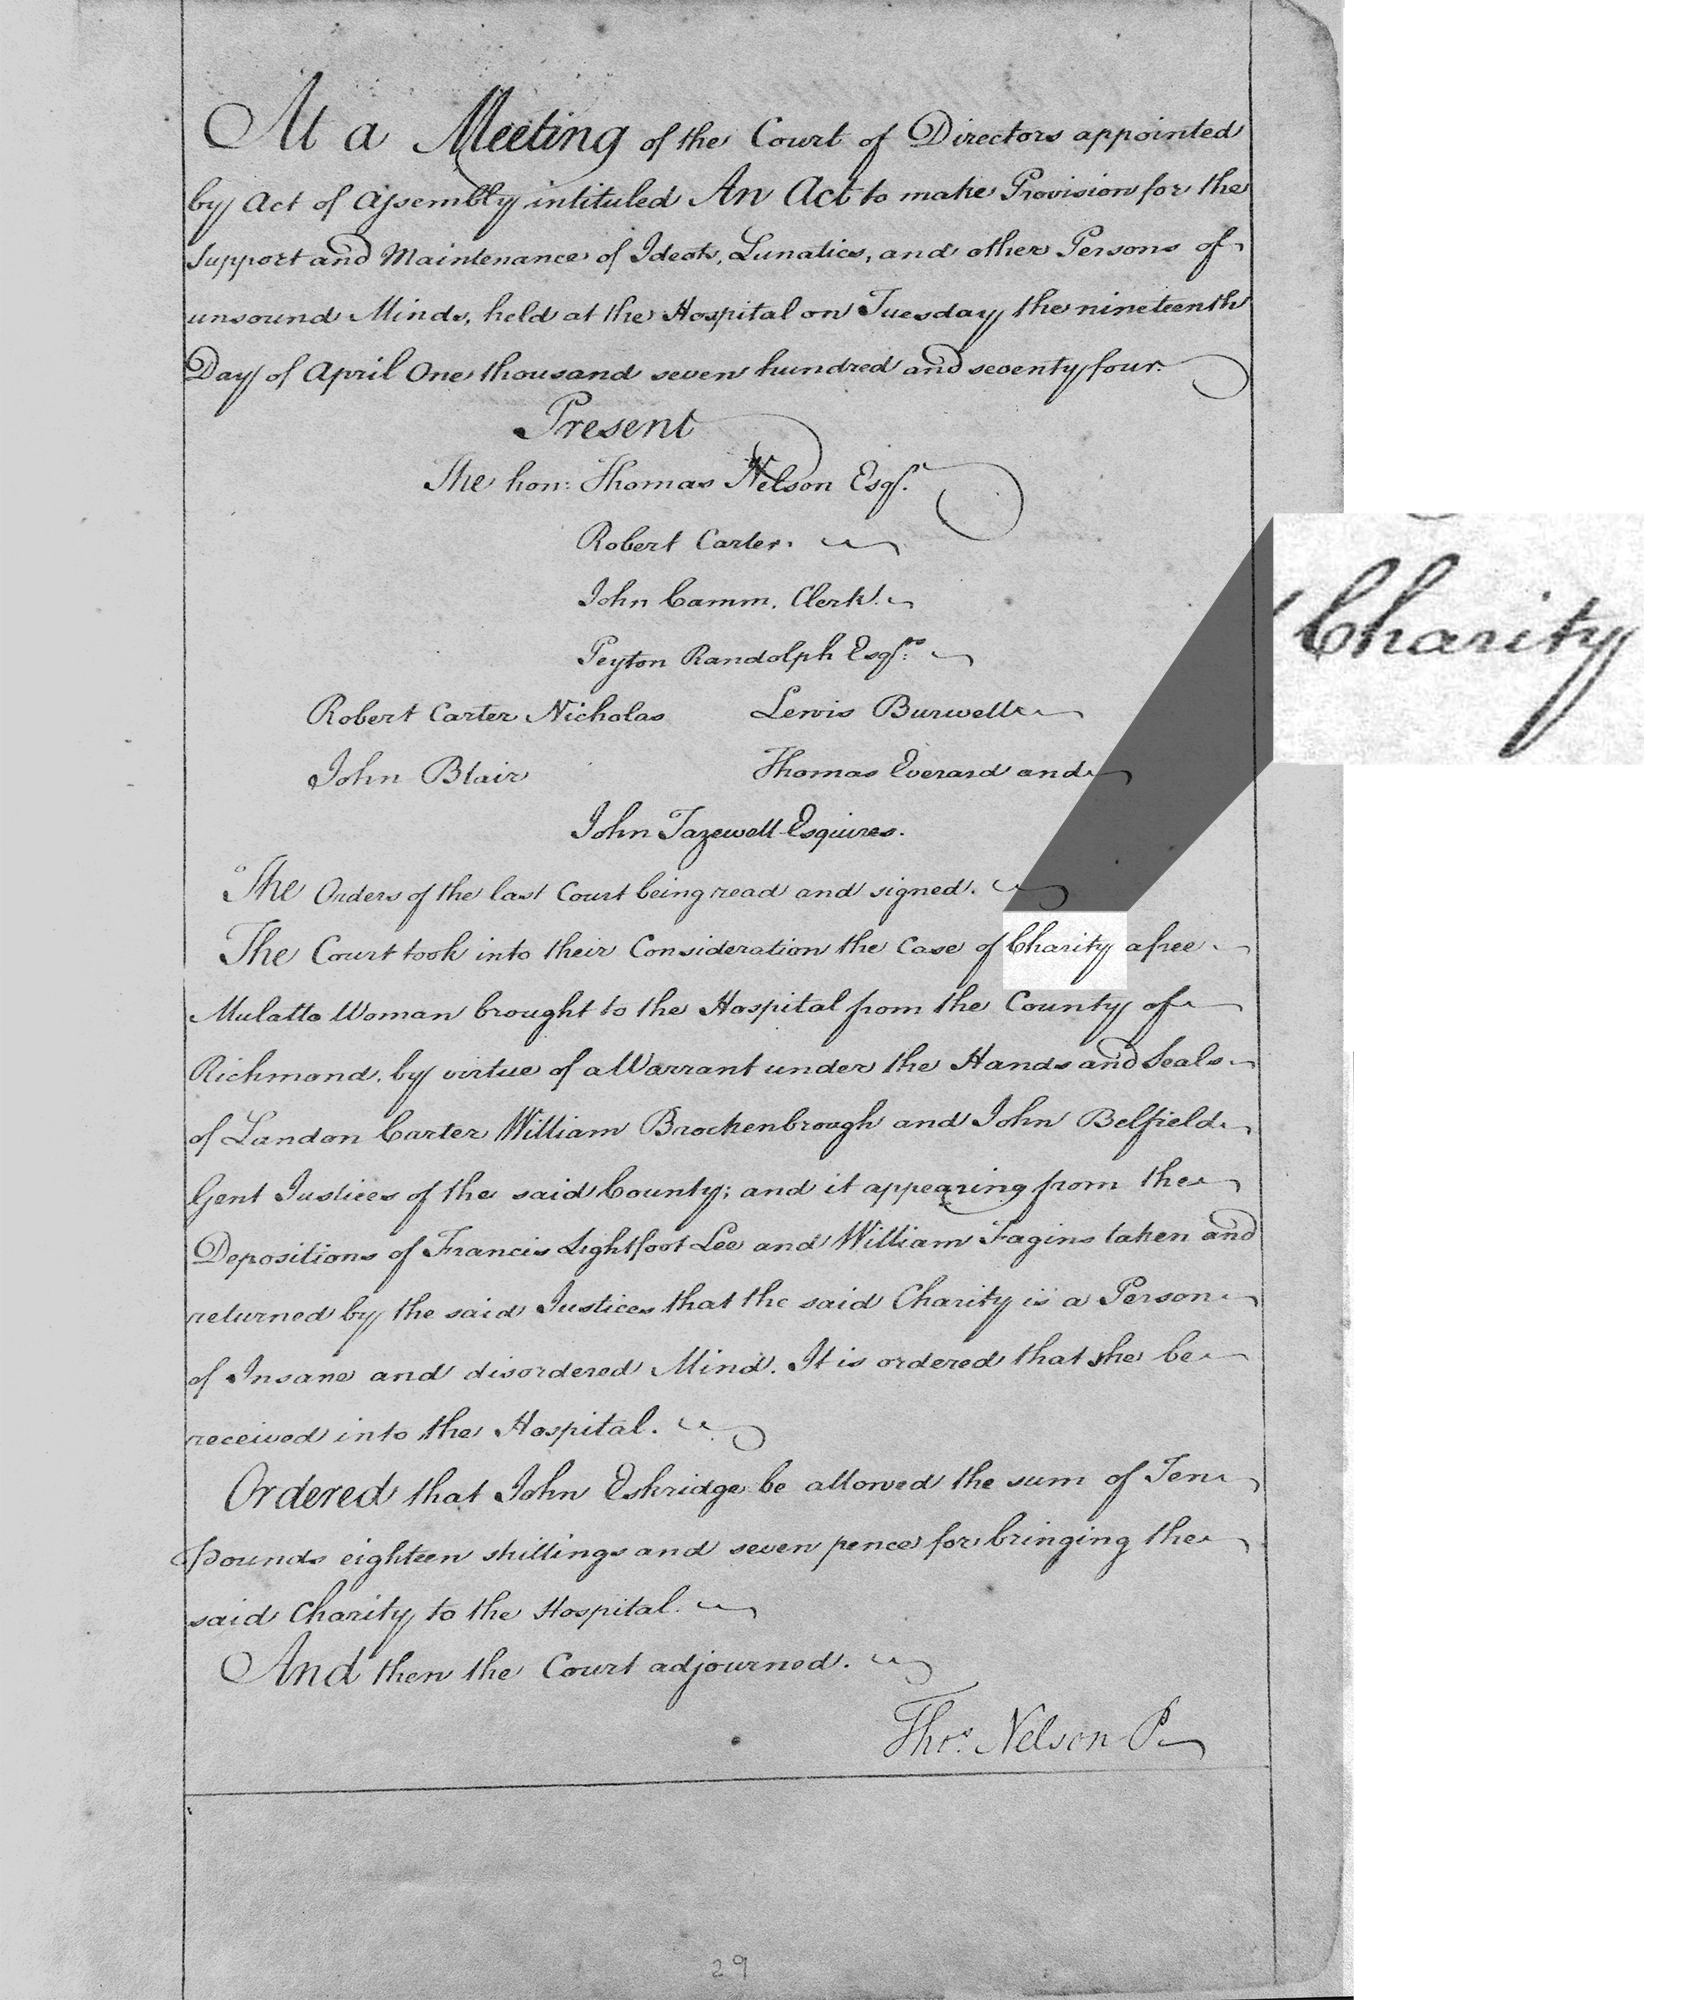 At a Meeting of the Court of Directors appointed
by Act of Assembly intituled An Act to make Provision for the
Support and Maintenance of Ideots, Lunatics, and other Persons of
unsound Minds, held at the Hospital on Tuesday the nineteenth
Day of April One thousand seven hundred and seventy four.
Present
The hon: Thomas Nelson Esqr.
Robert Carter.
John Camm, Clerk.
Peyton Randolph Esqrs.
Robert Carter Nicholas Lewis Burwell
John Blair Thomas Everard and
John Tazewell Esquires.
The Orders of the last Court being read and signed.
The Court took into their Consideration the Case of Charity a free
Mulatto Woman brought to the Hospital from the County of
Richmond, by virtue of a Warrant under the Hands and Seals
of Landon Carter William Brockenbrough and John Belfield
Gent Justices of the said County; and it appearing from the
Depositions of Francis Lightfoot Lee and William Fagins taken and
returned by the said Justices that the said Charity is a Person
of Insane and disordered Mind. It is ordered that she be
received into the Hospital.
Ordered that John Eskridge be allowed the sum of Ten
pounds eighteen shillings and seven pence for bringing the
said Charity to the Hospital.
And then the Court adjourned.
Thos. Nelson P
29
Charity